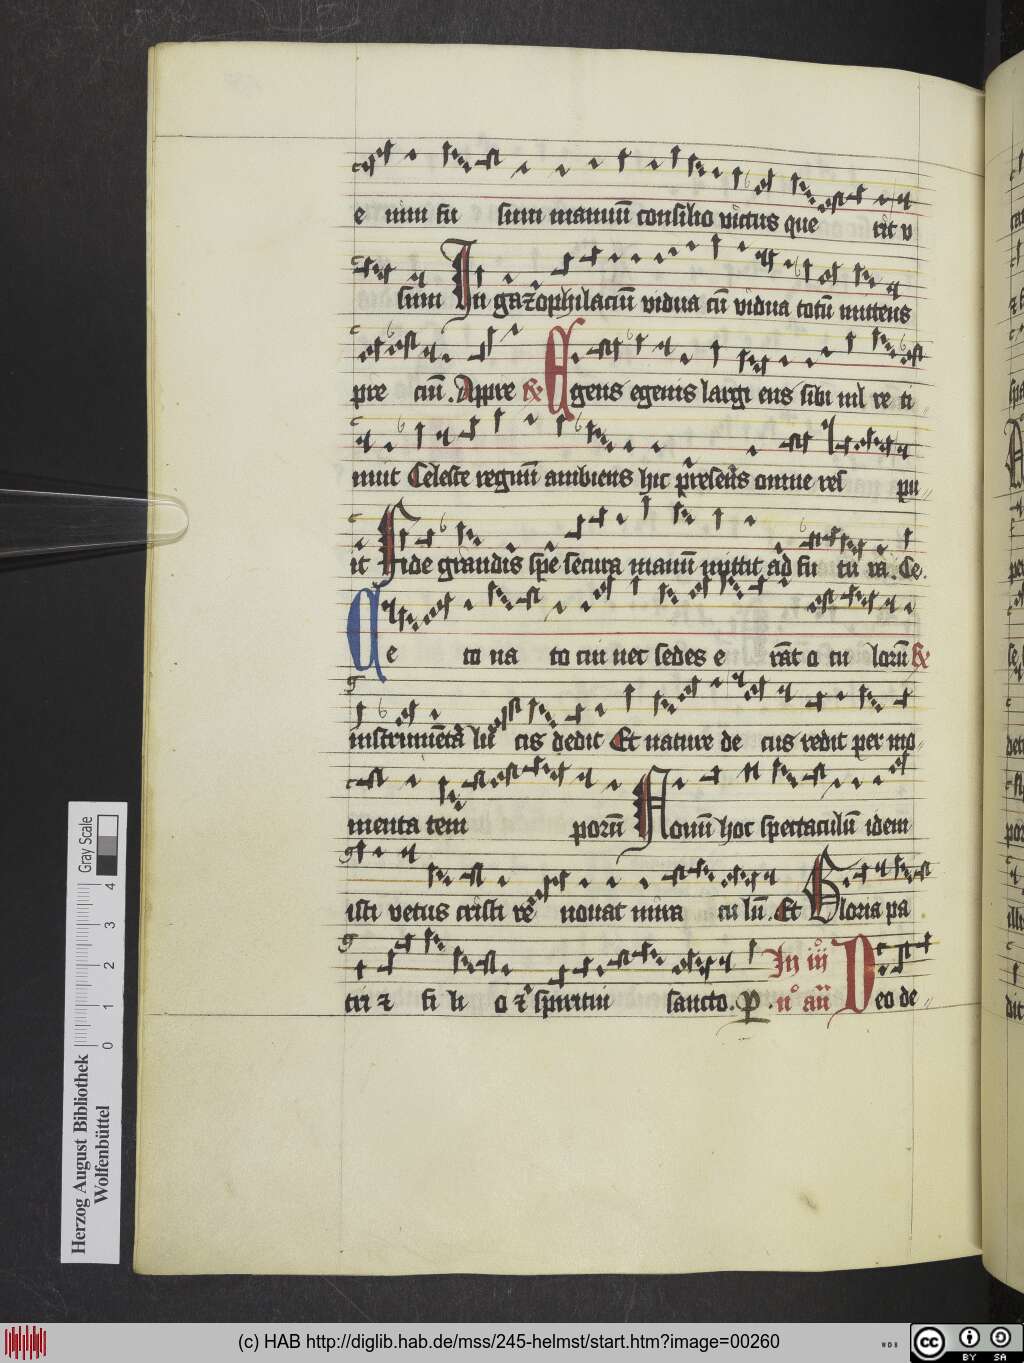 e nim su sum manuū consilio victus que rit v
sum In gazophilaciū vidua cū vidua totū mittens
pre ciū. Appre
Egens egenis largi ens sibi nil re ti
nuit Celeste regnuū ambiens hic
omne
it Fide grandis spē secura manuū mittit ad fu tu ra. Ce.
Ce to na to ciu nec sedes e rāt o cu lorū
lu cis dedit Et nature de cus redit per mo
menta tem porū Nouū hoc spectaculū idem
isti vetus cristi re nouat mira cu lū. Et Gloria pa
tri et fi li o et spiritui sancto. Deo de
Herzog August Bibliothek
Wolfenbüttel
Gray Scale
0 1 2 3 4
(c) HAB http://diglib.hab.de/mss/245-helmst/start.htm?image=00260
WDB
cc BY SA